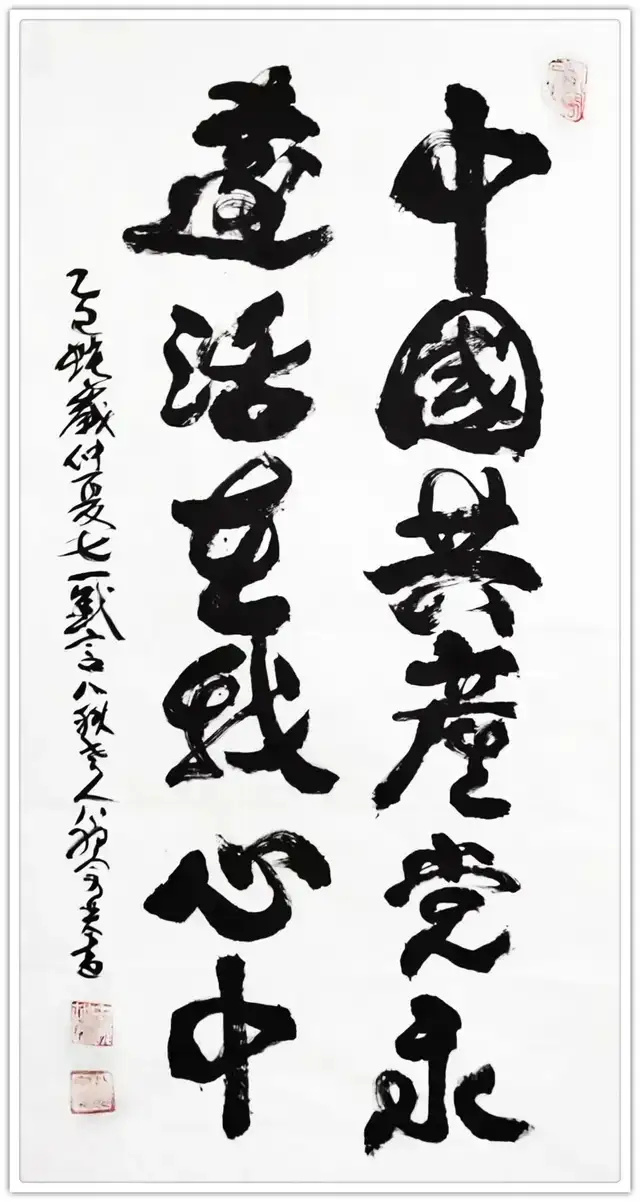 中國共產党永
遠活在我心中
乙巳蛇歲仲夏七一感言八秩老人書